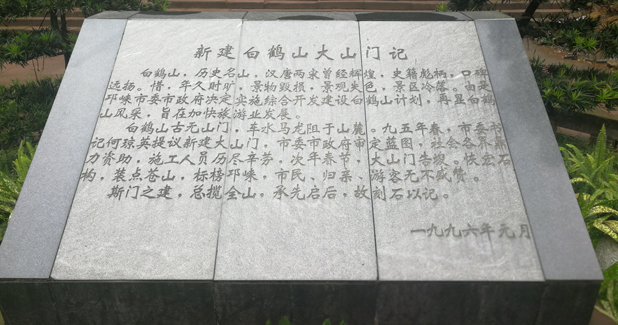 新建白鹤山大山门记
白鹤山，历史名山，汉唐两宋曾经辉煌，史籍彪炳，口碑
远扬。惜，年久时旷，景物毁损，景观失色，景区冷落。由是
邛崃市委市政府决定实施综合开发建设白鹤山计划，再显白鹤
山风采，旨在加快旅游业发展。
白鹤山古无山门，车水马龙阻于山麓。九五年春，市委书
记何琼英提议新建大山门，市委市政府审定蓝图，社会各界鼎
力资助，施工人员历尽辛劳，次年春节，大山门告竣。恢宏石
构，装点苍山，标榜邛崃，市民、归亲、游客无不感赞。
斯门之建，总揽全山，承先启后，故刻石以记。
一九九六年元月